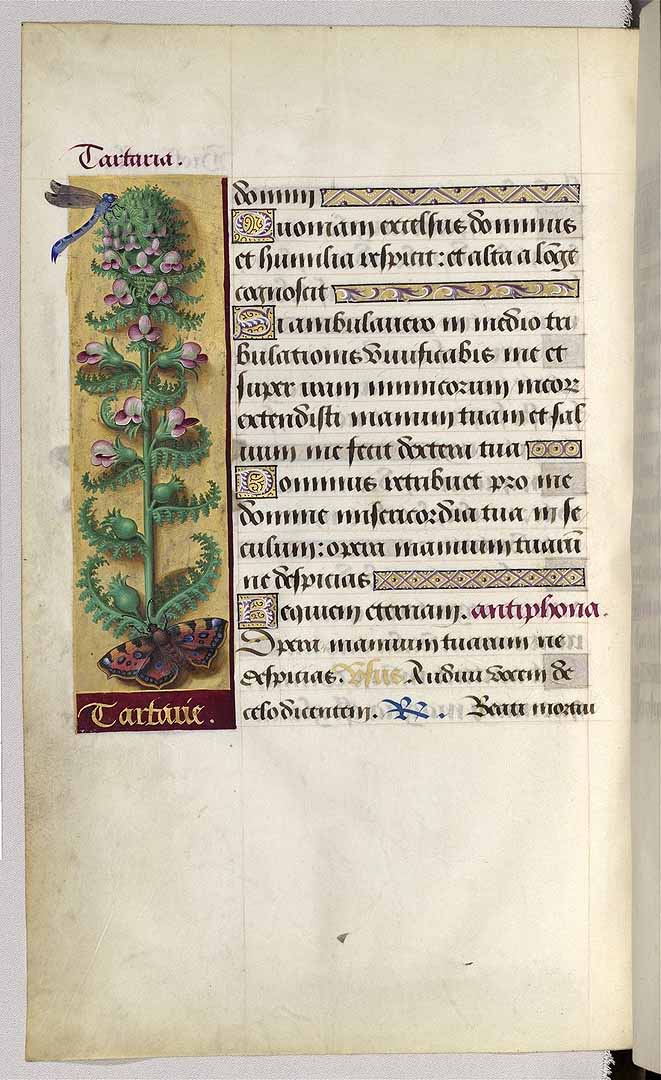 Tartaria.
domini
Quoniam excelsus dominus
et humilia respicit: et alta a longe
cognoscit
Si ambulavero in medio tri
bulationis vivificabis me et
super iram inimicorum meorum
extendisti manum tuam et sal
vum me fecit dextera tua
Dominus retribuet pro me
domine misericordia tua in se
culum: opera manuum tuarum
ne despicias
Requiem eternam. antiphona.
Opera manuum tuarum ne
despicias. Vsus. Audivi vocem de
Tartarie.
celo dicentem. R. Beati mortui